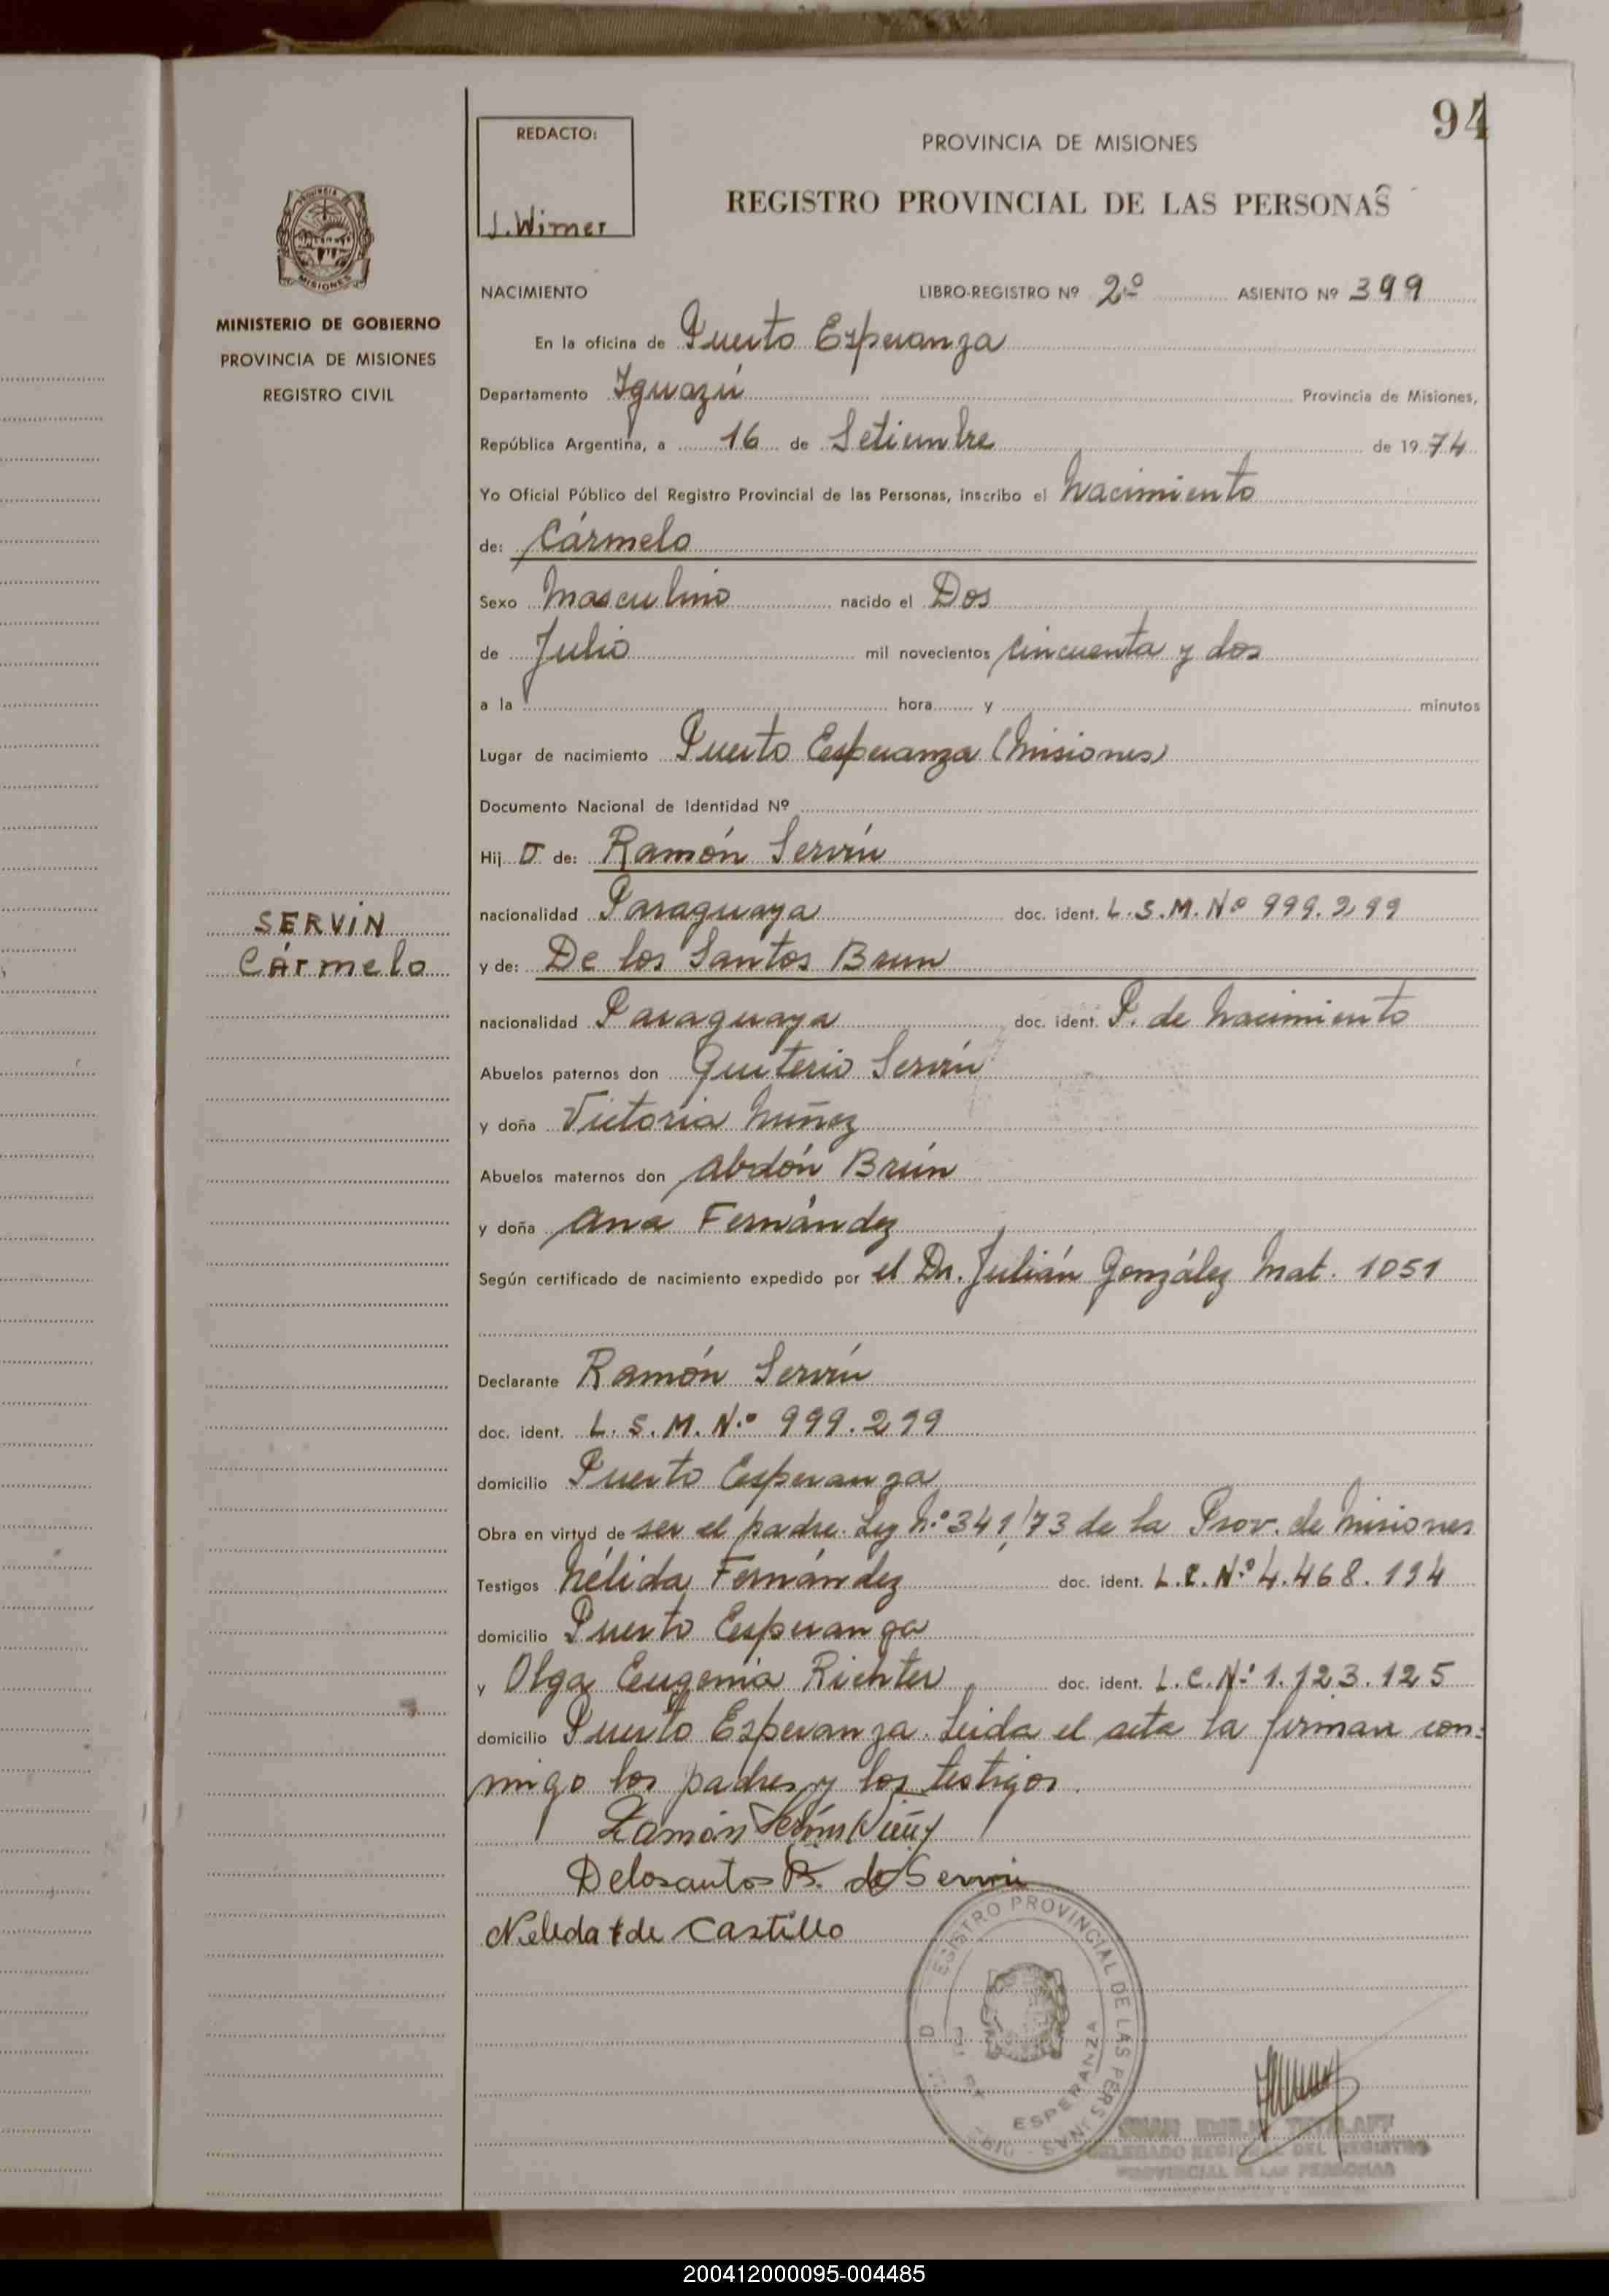 94
REDACTO:
J. Wirner
PROVINCIA DE MISIONES
REGISTRO PROVINCIAL DE LAS PERSONAS
PROVINCIA
MISIONES
MINISTERIO DE GOBIERNO
PROVINCIA DE MISIONES
REGISTRO CIVIL
NACIMIENTO LIBRO-REGISTRO Nº 2º ASIENTO Nº 399
En la oficina de Puerto Esperanza
Departamento Iguazú Provincia de Misiones,
República Argentina, a 16 de Setiembre de 1974
Yo Oficial Público del Registro Provincial de las Personas, inscribo el Nacimiento
de: Cármelo
Sexo Masculino nacido el Dos
de Julio mil novecientos cincuenta y dos
a la hora y minutos
Lugar de nacimiento Puerto Esperanza (Misiones)
Documento Nacional de Identidad Nº
Hij o de: Ramón Servín
nacionalidad Paraguaya doc. ident. L.S.M. Nº 999.299
SERVÍN
Cármelo
y de: De los Santos Brun
nacionalidad Paraguaya doc. ident. P. de Nacimiento
Abuelos paternos don Quiterio Servín
y doña Victoria Núñez
Abuelos maternos don Abdón Brún
y doña Ana Fernández
Según certificado de nacimiento expedido por el Dr. Julián González Mat. 1051
Declarante Ramón Servín
doc. ident. L.S.M. N.º 999.299
domicilio Puerto Esperanza
Obra en virtud de ser el padre. Ley N.º 341/73 de la Prov. de Misiones
Testigos Nélida Fernández doc. ident. L.C. N.º 4.468.194
domicilio Puerto Esperanza
y Olga Eugenia Richter doc. ident. L.C. N.º 1.123.125
domicilio Puerto Esperanza. Leida el acta la firman con=
migo los padres y los testigos.
Ramón Servín Núñez
Delosantos B. de Servín
Nelida f de Castillo
REGISTRO PROVINCIAL DE LAS PERSONAS
ESPERANZA
DELEGADO REGIONAL DEL REGISTRO
PROVINCIAL DE LAS PERSONAS
200412000095-004485